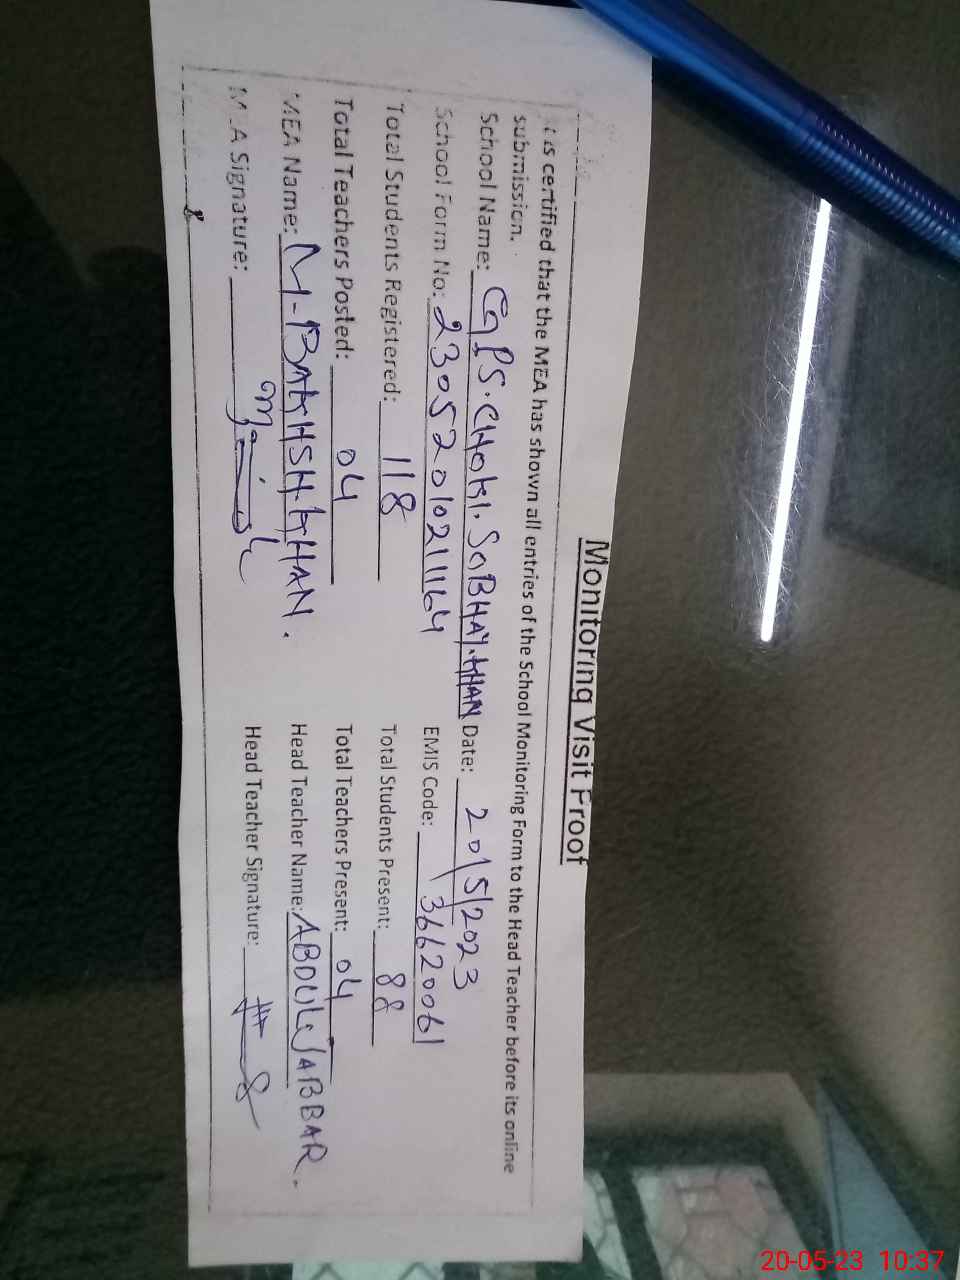 Monitoring Visit Proof
It is certified that the MEA has shown all entries of the School Monitoring Form to the Head Teacher before its online
submission.
School Name: GPS.CHOKI.SOBHAY.KHAN Date: 20/5/2023
School Form No: 2305201021164 EMIS Code: 36620061
Total Students Registered: 118 Total Students Present: 88
Total Teachers Posted: 04 Total Teachers Present: 04
MEA Name: M-BAKHSH.KHAN. Head Teacher Name: ABDUL JABBAR.
MEA Signature: Head Teacher Signature:
20-05-23 10:37